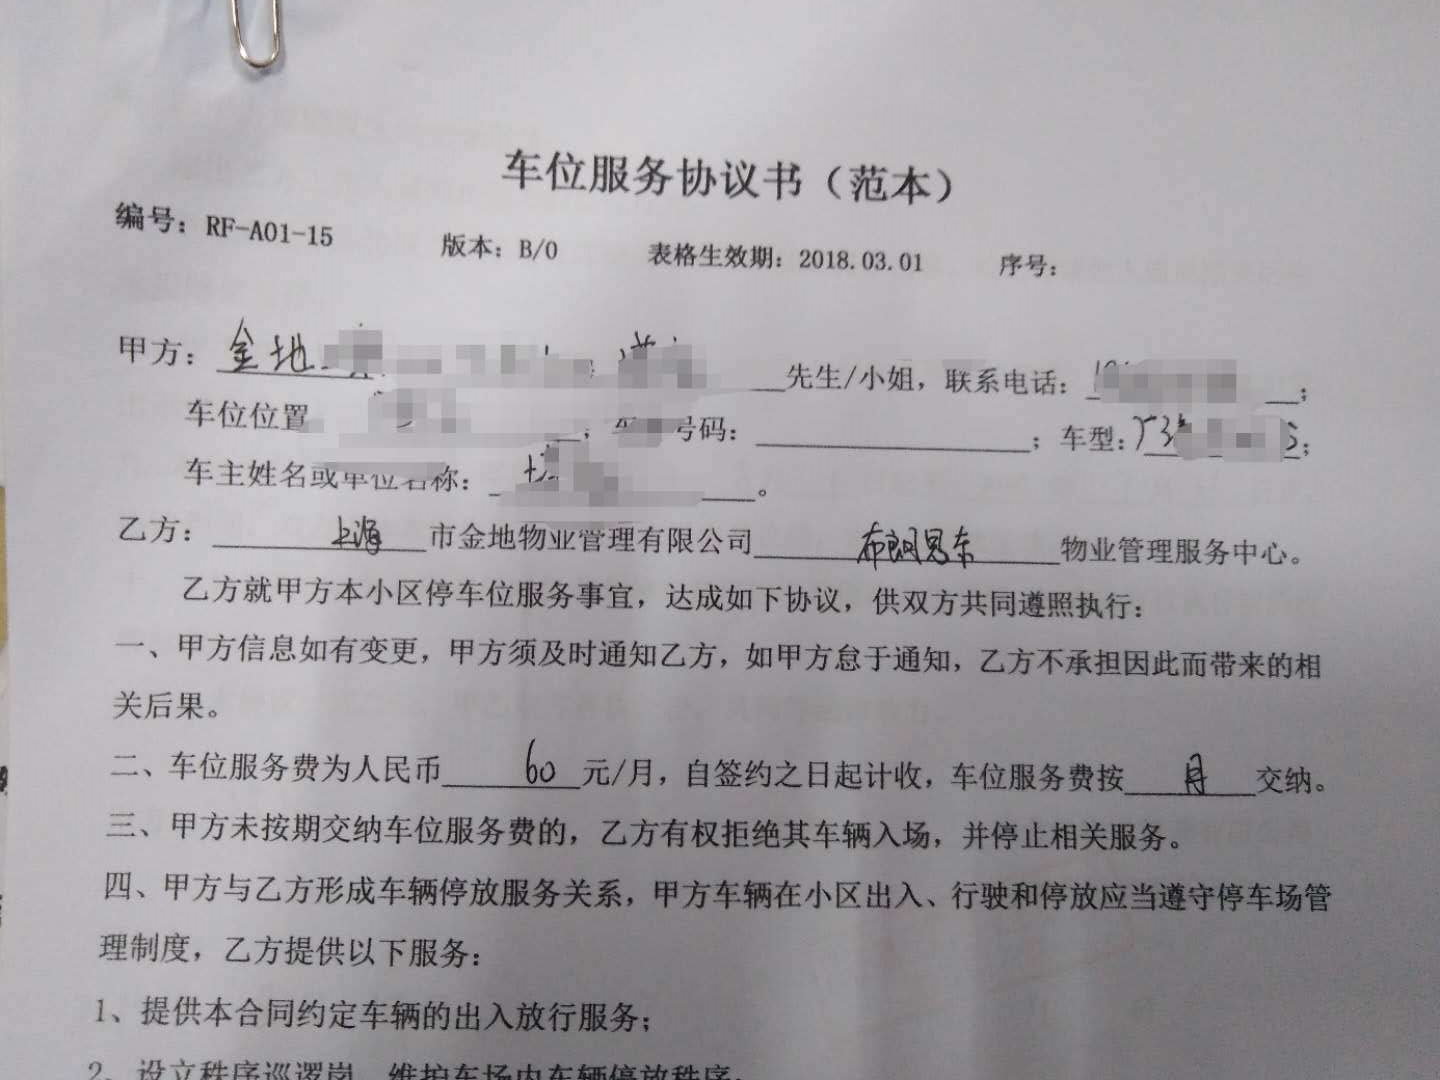 车位服务协议书（范本）
编号：RF-A01-15 版本：B/0 表格生效期：2018.03.01 序号：
甲方：金地 先生/小姐，联系电话： ；
车位位置 ； 号码： ；车型： ；
车主姓名或单位名称： 。
乙方：上海市金地物业管理有限公司布朗思东物业管理服务中心。
乙方就甲方本小区停车位服务事宜，达成如下协议，供双方共同遵照执行：
一、甲方信息如有变更，甲方须及时通知乙方，如甲方怠于通知，乙方不承担因此而带来的相
关后果。
二、车位服务费为人民币60元/月，自签约之日起计收，车位服务费按月交纳。
三、甲方未按期交纳车位服务费的，乙方有权拒绝其车辆入场，并停止相关服务。
四、甲方与乙方形成车辆停放服务关系，甲方车辆在小区出入、行驶和停放应当遵守停车场管
理制度，乙方提供以下服务：
1、提供本合同约定车辆的出入放行服务；
2、设立秩序巡逻岗，维护车场内车辆停放秩序；